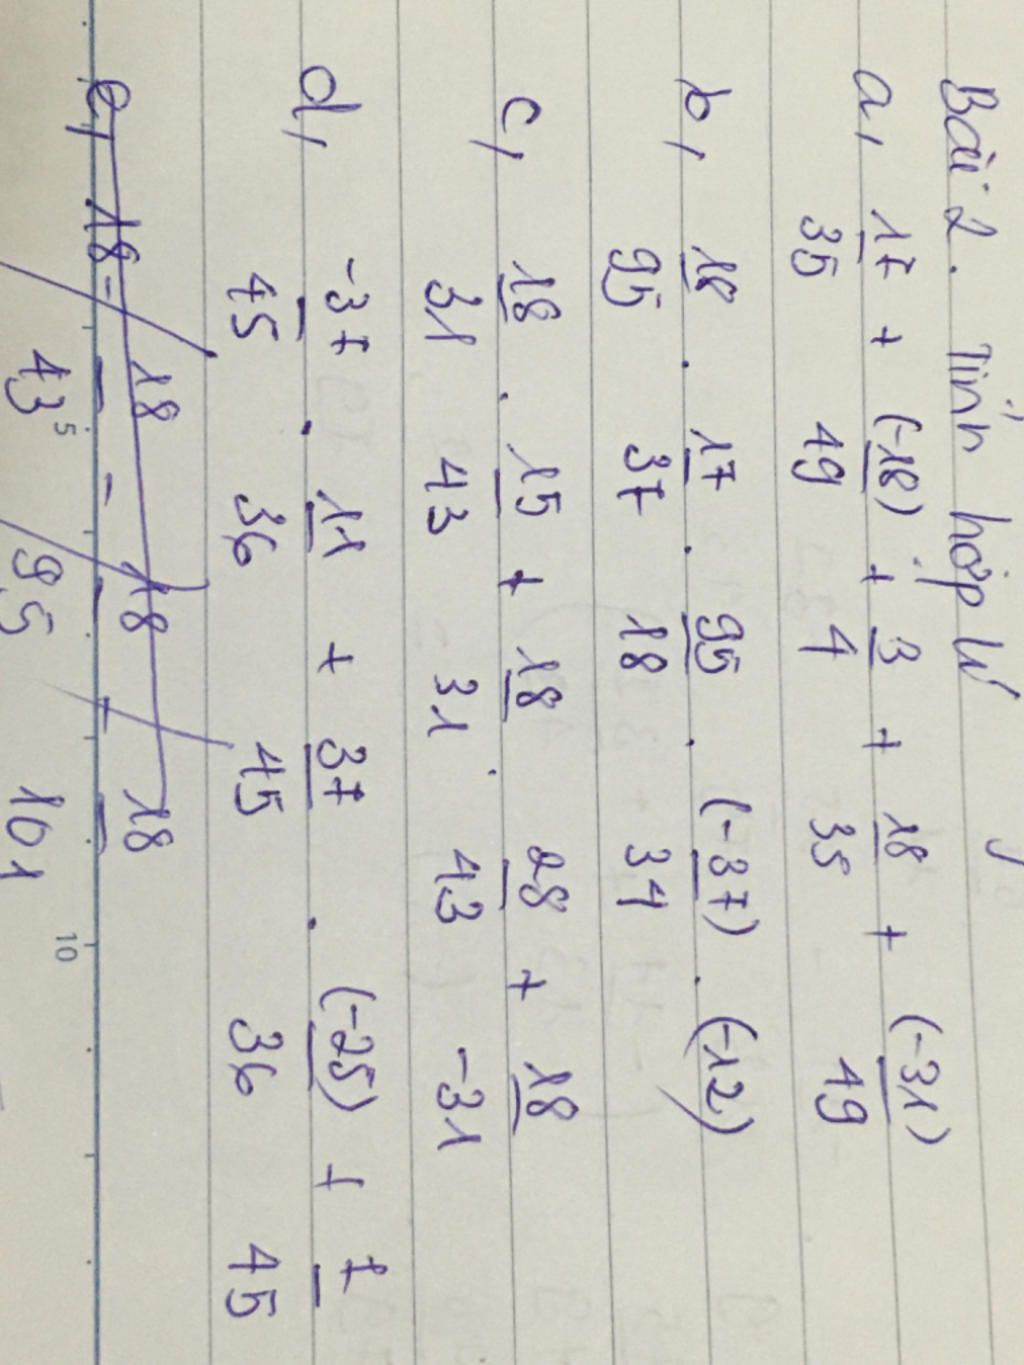 Bài 2. Tính hợp lí
a, 17/35 + (-18)/49 + 3/4 + 18/35 + (-31)/49
b, 18/95 . 17/37 . 95/18 . (-37)/34 . (-12)
c, 18/31 . 15/43 + 18/31 . 28/43 + 18/-31
d, -37/45 . 11/36 + 37/45 . (-25)/36 + 7/45
e, 18 - 18/43 - 18/95 - 18/101
5 10